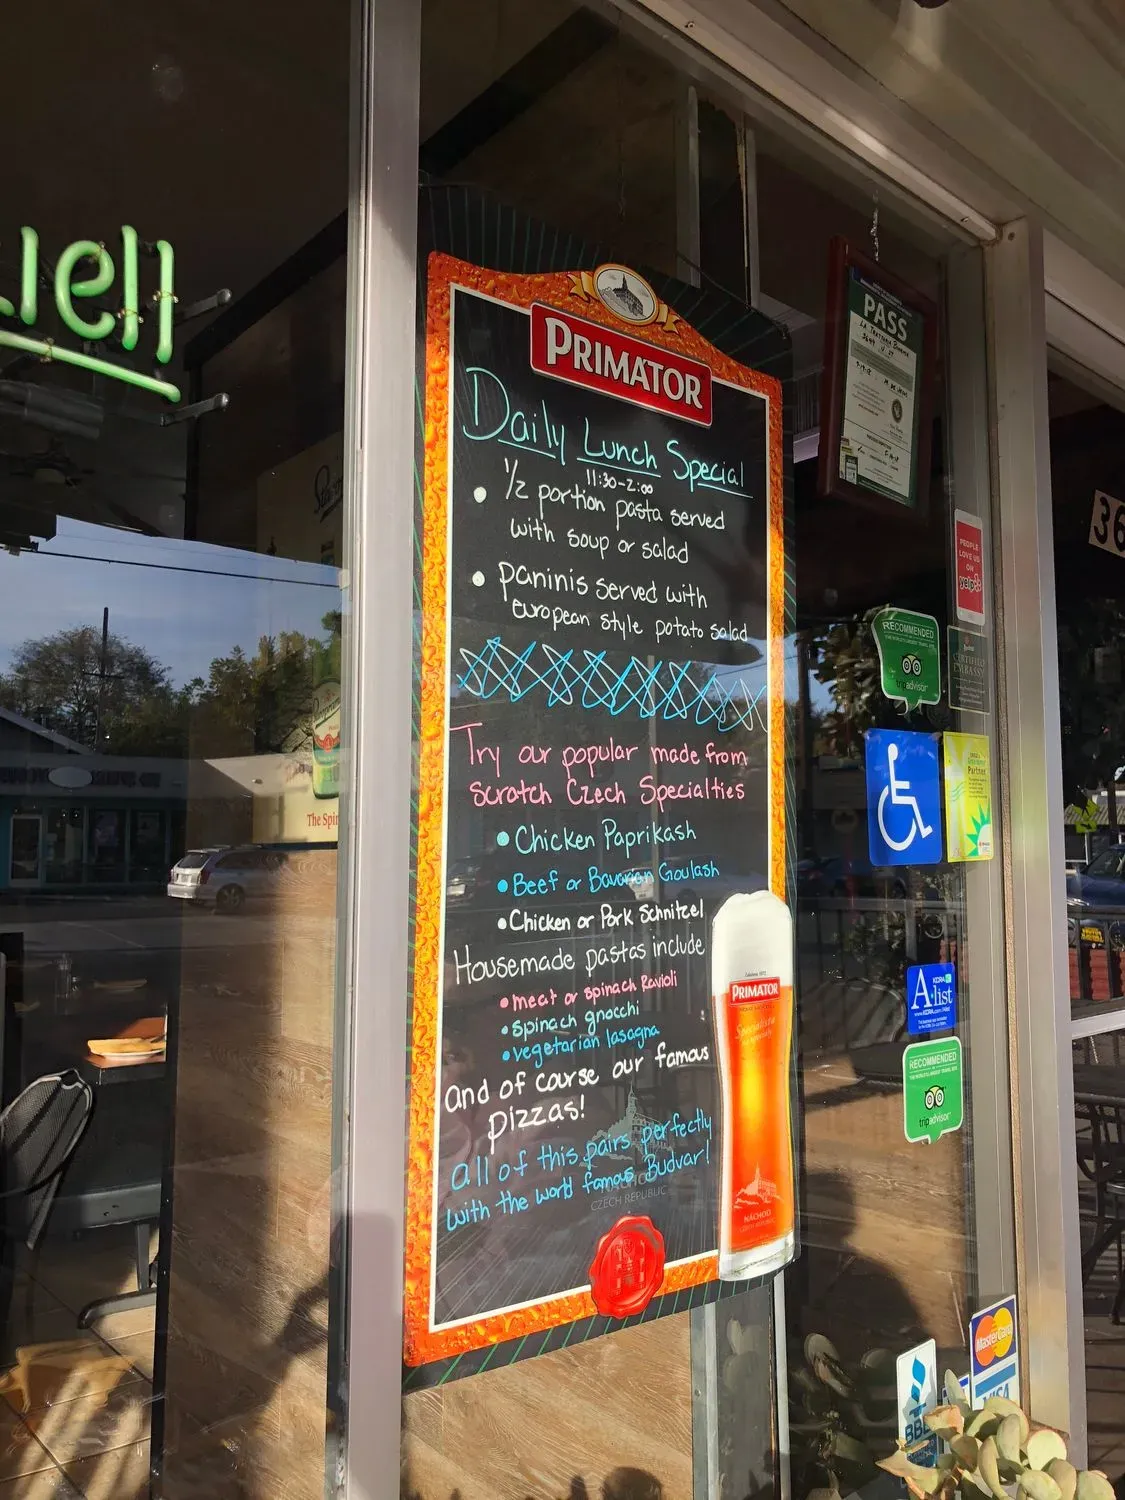 PRIMÁTOR
Daily Lunch Special
11:30-2:00
• 1/2 portion pasta served
with soup or salad
• paninis served with
european style potato salad
Try our popular made from
scratch Czech Specialties
• Chicken Paprikash
• Beef or Bavarian Goulash
• Chicken or Pork Schnitzel
Housemade pastas include
• meat or spinach Ravioli
• spinach gnocchi
• vegetarian lasagna
And of course our famous
pizzas!
all of this pairs perfectly
with the world famous Budvar!
NÁCHOD
CZECH REPUBLIC
PRIMATOR
NÁCHOD
PASS
PEOPLE
LOVE US
ON
yelp
RECOMMENDED
tripadvisor
CERTIFIED
EMBASSY
Partner
36
KCRA
A-list
RECOMMENDED
tripadvisor
MasterCard
VISA
BBB
The Spir